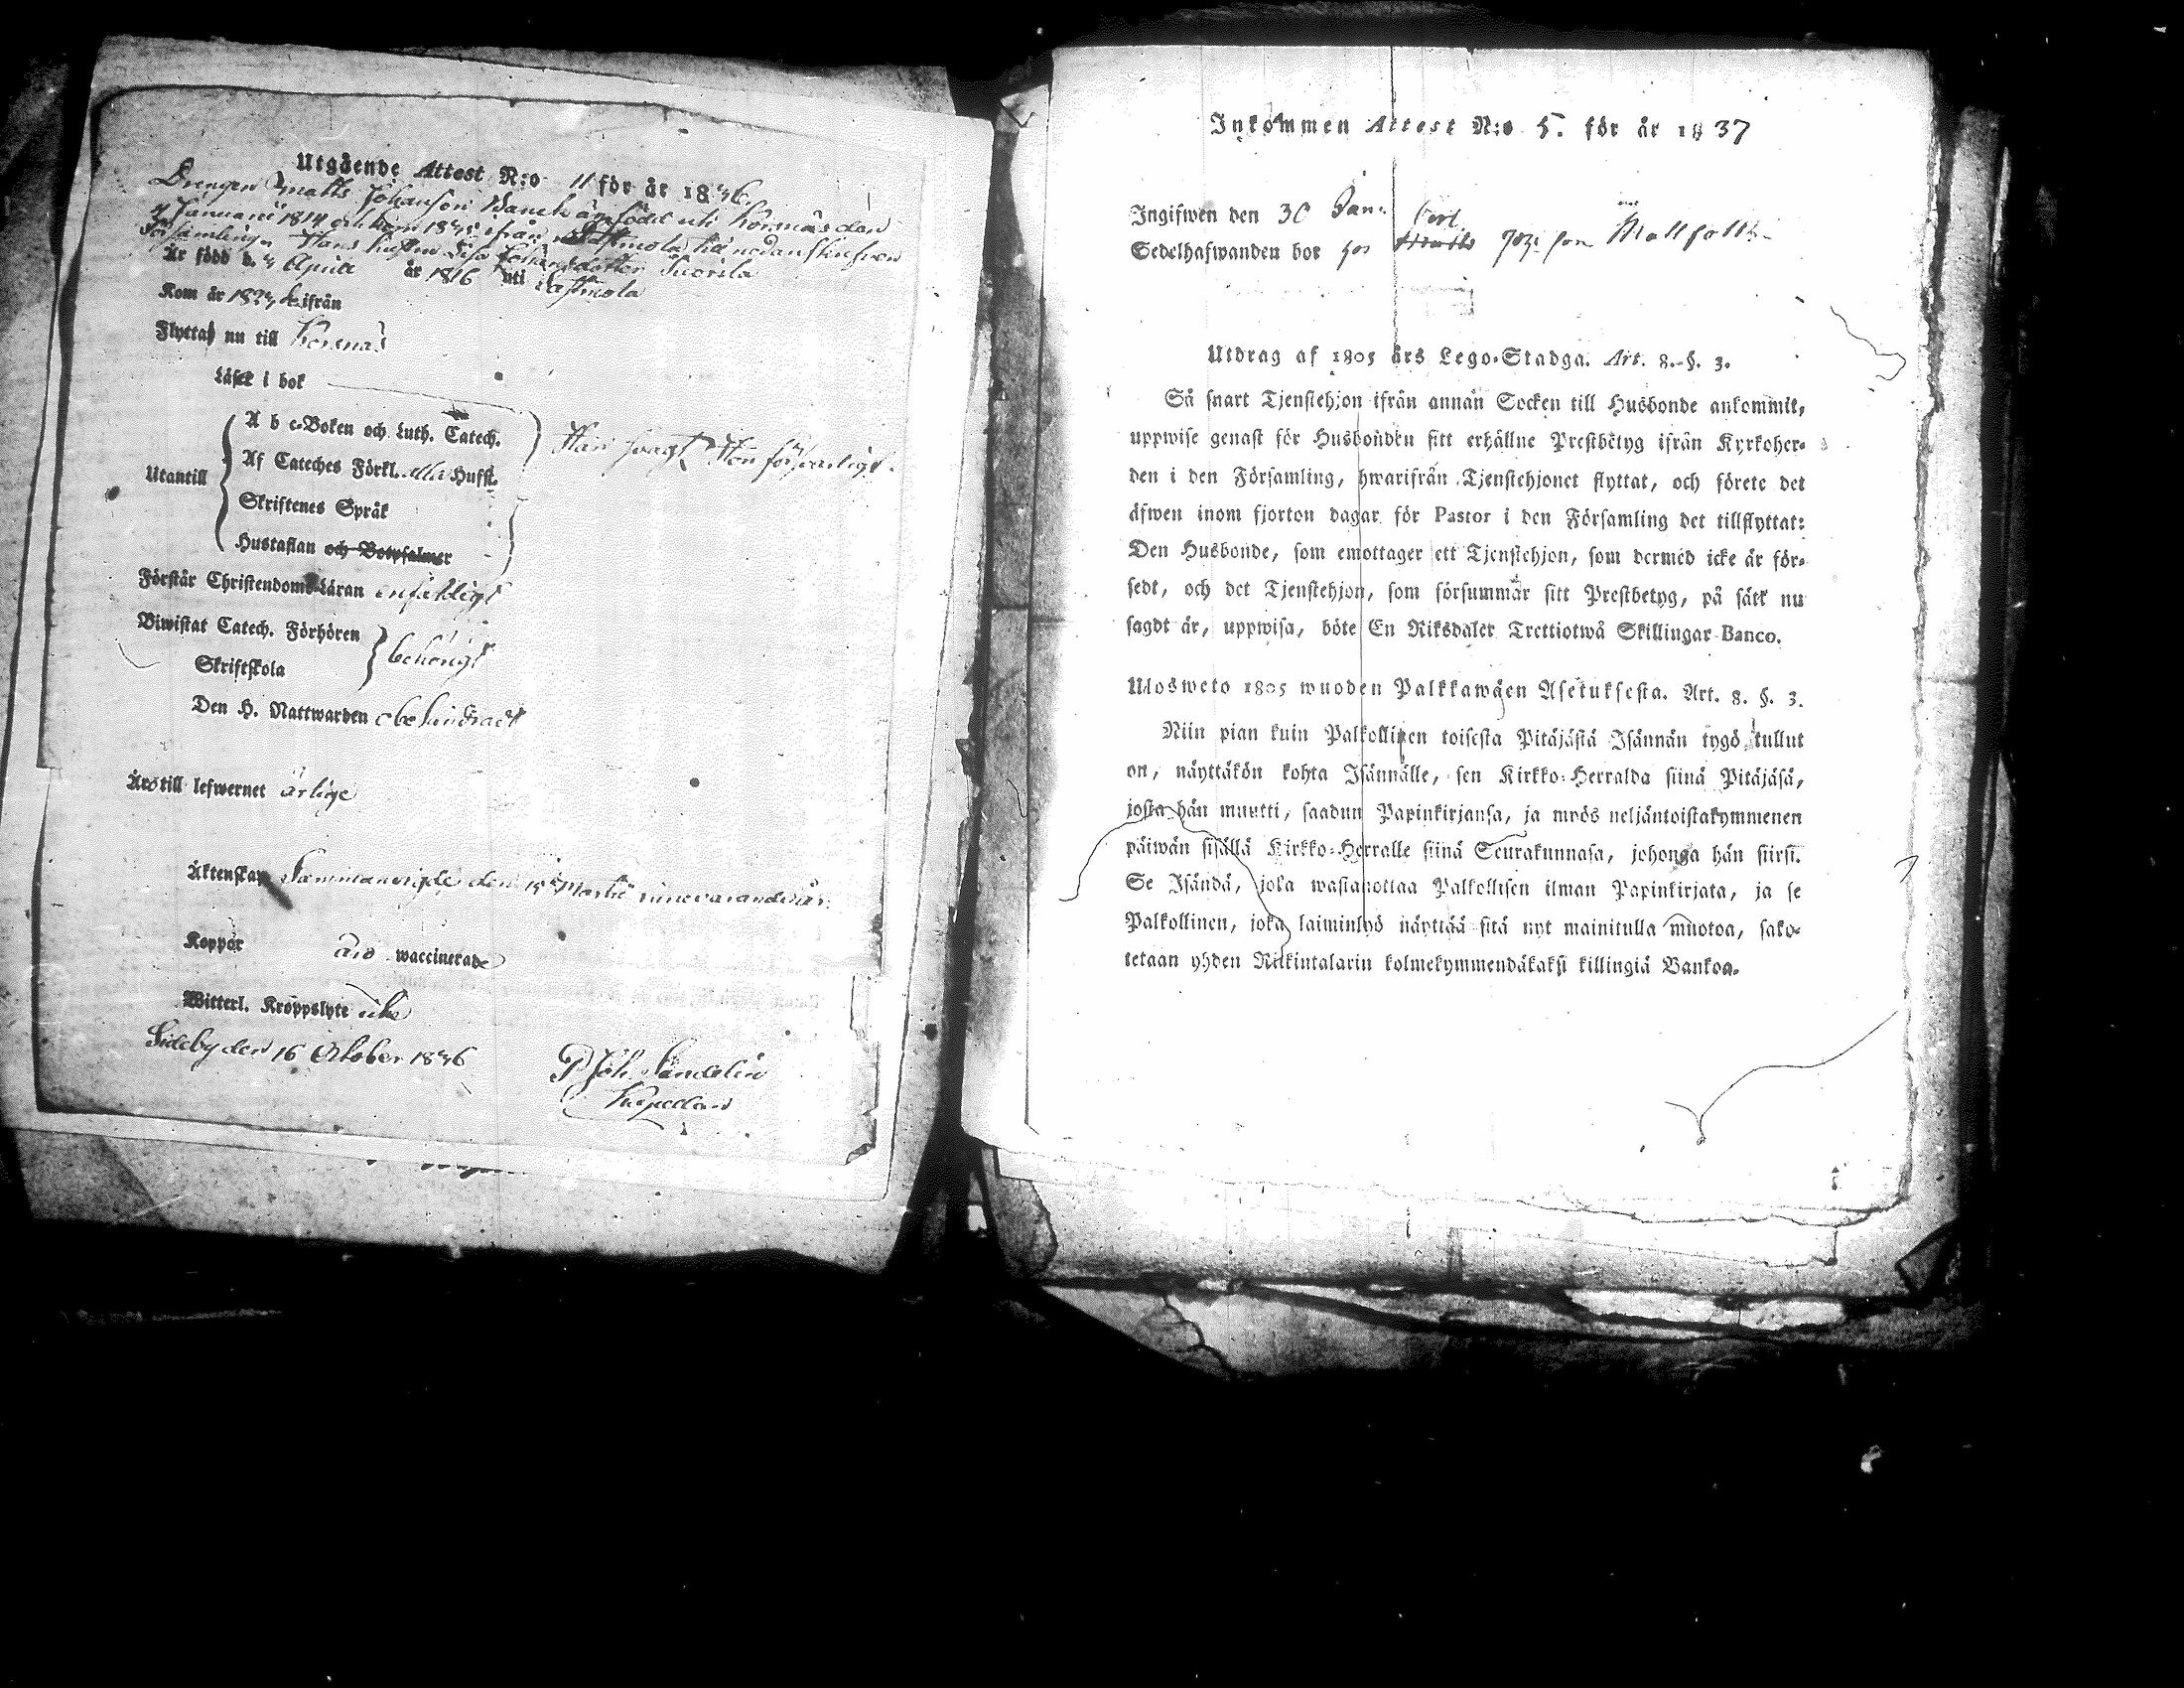 Utgående Attest N:o 11 för år 1836.
Drengen Matts Johanson är född uti Korsnäs den
Januarii 1814 och kom ifrån Lastmola til nedanskrefven
Församling. Hans hustru Lisa Johansdotter
Är född d. Aprill år 1816 uti Lastmola
Kom år ifrån
Flyttas nu till Korsnäs
Läser i bok
Utantill
A b c-Boken och Luth. Catech.
Af Cateches Förkl. alla Hufst.
Han svagt Hon försvarligt.
Skriftenes Språk
Hustaflan och Botpsalmer
Förstår Christendoms-Läran enfaldigt
Biwistat Catech. Förhören
Skriftskola
behörigt
Den H. Nattwarden obehindradt
Äro till lefwernet ärlige
Äktenskap Sammanvigde den 15 Martii innevarande år.
Koppor äro waccinerade
Witterl. Kroppslyte icke
Sideby den 16 October 1836
Joh. Sandelin
Kapellan
Inkommen Attest N:o 5. för år 1837
Ingifwen den 30 Jan.
Sedelhafwanden bor hos
Utdrag af 1805 års Lego-Stadga. Art. 8. §. 3.
Så snart Tjenstehjon ifrån annan Socken till Husbonde ankommit,
uppwise genast för Husbonden sitt erhållne Prestbetyg ifrån Kyrkoher-
den i den Församling, hwarifrån Tjenstehjonet flyttat, och förete det
äfwen inom fjorton dagar för Pastor i den Församling det tillflyttat:
Den Husbonde, som emottager ett Tjenstehjon, som dermed icke är för-
sedt, och det Tjenstehjon, som försummar sitt Prestbetyg, på sätt nu
sagdt är, uppwisa, böte En Riksdaler Trettiotwå Skillingar Banco.
Ulosweto 1805 wuoden Palkkawäen Asetuksesta. Art. 8. §. 3.
Niin pian kuin Palkollinen toisesta Pitäjästä Isännän tygö tullut
on, näyttäkön kohta Isännälle, sen Kirkko-Herralda siinä Pitäjäsä,
josta hän muutti, saadun Papinkirjansa, ja myös neljäntoistakymmenen
päiwän sisällä Kirkko-Herralle siinä Seurakunnasa, johonga hän siirsi.
Se Isändä, joka wastaottaa Palkollisen ilman Papinkirjata, ja se
Palkollinen, joka laiminlyö näyttää sitä nyt mainitulla muotoa, sako-
tetaan yhden Riikintalarin kolmekymmendäkaksi killingiä Bankoa.